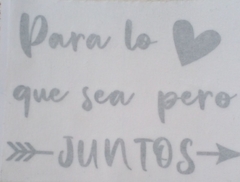 Para lo
que sea pero
JUNTOS